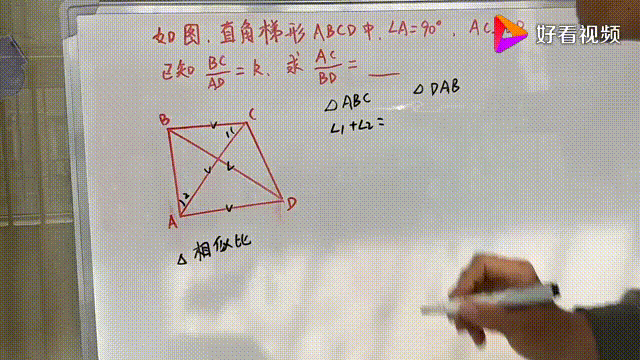 如图,直角梯形ABCD中,∠A=90°, AC
好看视频
已知 BC/AD = k, 求 AC/BD = ___
△ABC △DAB
∠1+∠2=
B C
1
2
A D
△相似比